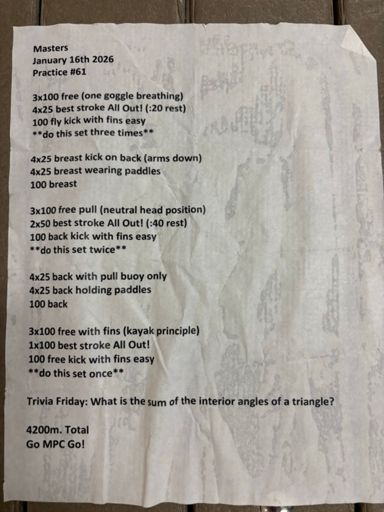 Masters
January 16th 2026
Practice #61
3x100 free (one goggle breathing)
4x25 best stroke All Out! (:20 rest)
100 fly kick with fins easy
**do this set three times**
4x25 breast kick on back (arms down)
4x25 breast wearing paddles
100 breast
3x100 free pull (neutral head position)
2x50 best stroke All Out! (:40 rest)
100 back kick with fins easy
**do this set twice**
4x25 back with pull buoy only
4x25 back holding paddles
100 back
3x100 free with fins (kayak principle)
1x100 best stroke All Out!
100 free kick with fins easy
**do this set once**
Trivia Friday: What is the sum of the interior angles of a triangle?
4200m. Total
Go MPC Go!